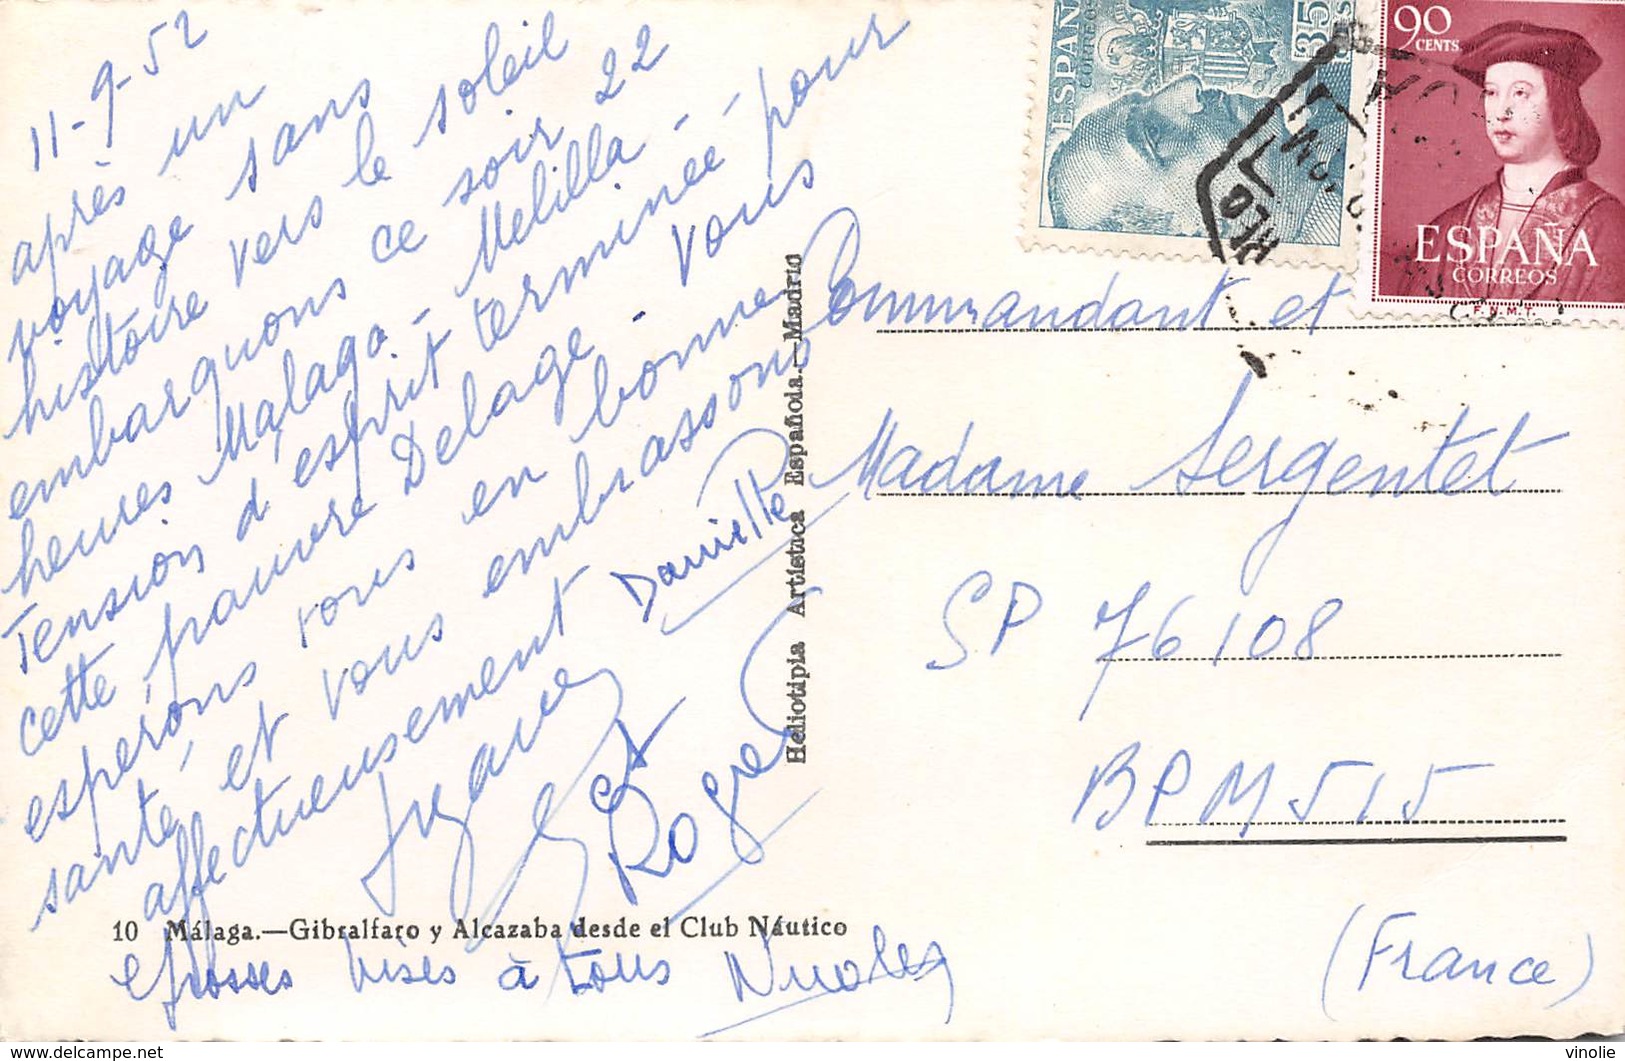 11-9-52
après un
voyage sans
histoire vers le soleil
embarquons ce soir 22
heures Malaga - Melilla -
Tension d'esprit terminée pour
cette pauvre Delage. Vous
espérons tous en bonne
santé, et vous embrassons
affectueusement
Danielle
et Roger
Grosses bises à tous
10 Málaga.—Gibralfaro y Alcazaba desde el Club Náutico
Heliotipia Artística Española.—Madrid
ESPAÑA
CORREOS
35
90
CENTS
ESPAÑA
CORREOS
F.N.M.T.
Commandant et
Madame Sergentet
SP 76108
BPM 515
(France)
delcampe.net
vinolie